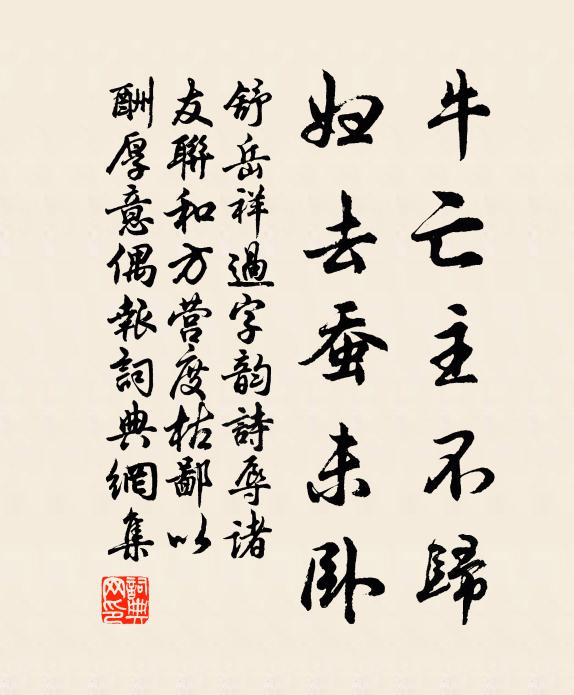 牛亡主不歸
妇去蚕未卧
舒岳祥過字韵詩辱諸
友聯和方营度枯鄙以
酬厚意偶報詞典網集
詞典网印